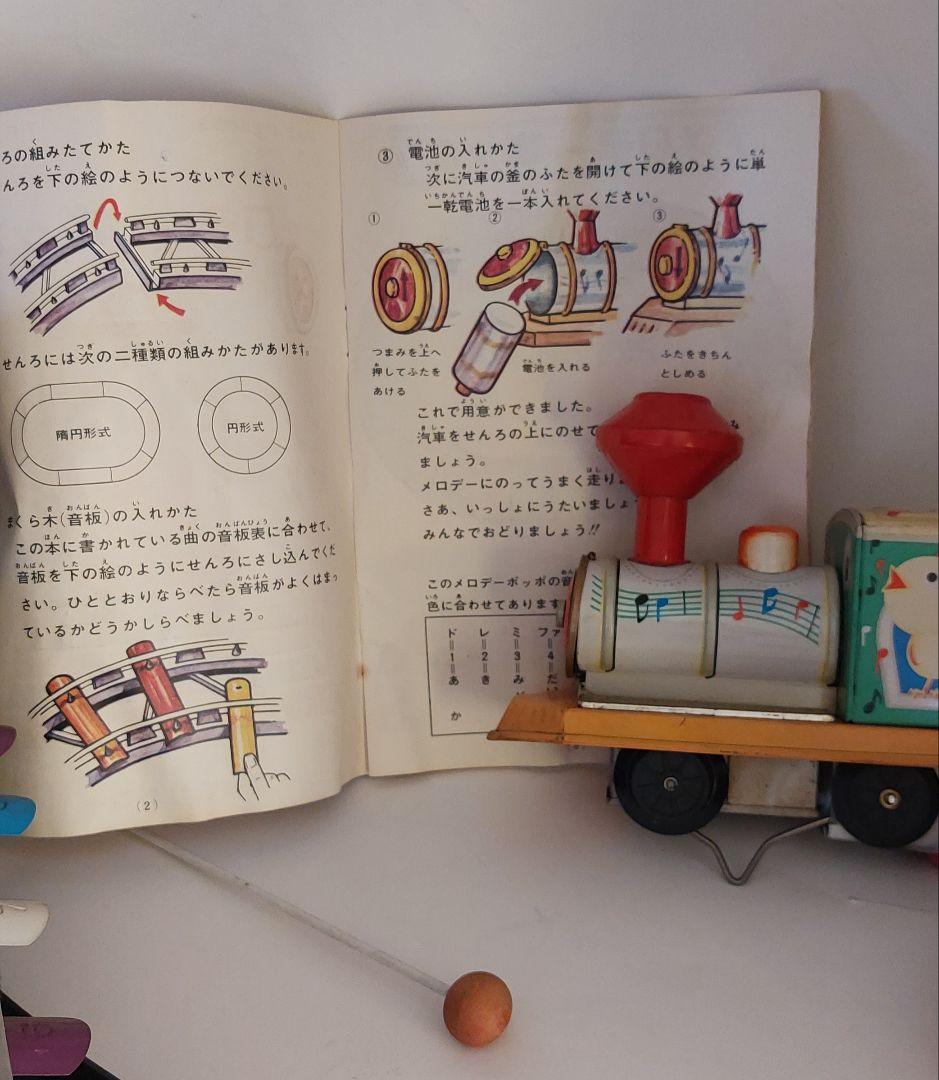 ろの組みたてかた
んろを下の絵のようにつないでください。
せんろには次の二種類の組みかたがあります。
隋円形式
円形式
まくら木(音板)の入れかた
この本に書かれている曲の音板表に合わせて、
音板を下の絵のようにせんろにさし込んでくだ
さい。ひととおりならべたら音板がよくはまっ
ているかどうかしらべましょう。
(2)
③ 電池の入れかた
次に汽車の釜のふたを開けて下の絵のように単
一乾電池を一本入れてください。
①
②
③
つまみを上へ
押してふたを
あける
電池を入れる
ふたをきちん
としめる
これで用意ができました。
汽車をせんろの上にのせて
ましょう。
メロデーにのってうまく走り
さあ、いっしょにうたいましょ
みんなでおどりましょう!!
このメロデーポッポの音
色に合わせてあります
ド レ ミ ファ
‖ ‖ ‖ ‖
1 2 3 4
‖ ‖ ‖ ‖
あ き み だ
か